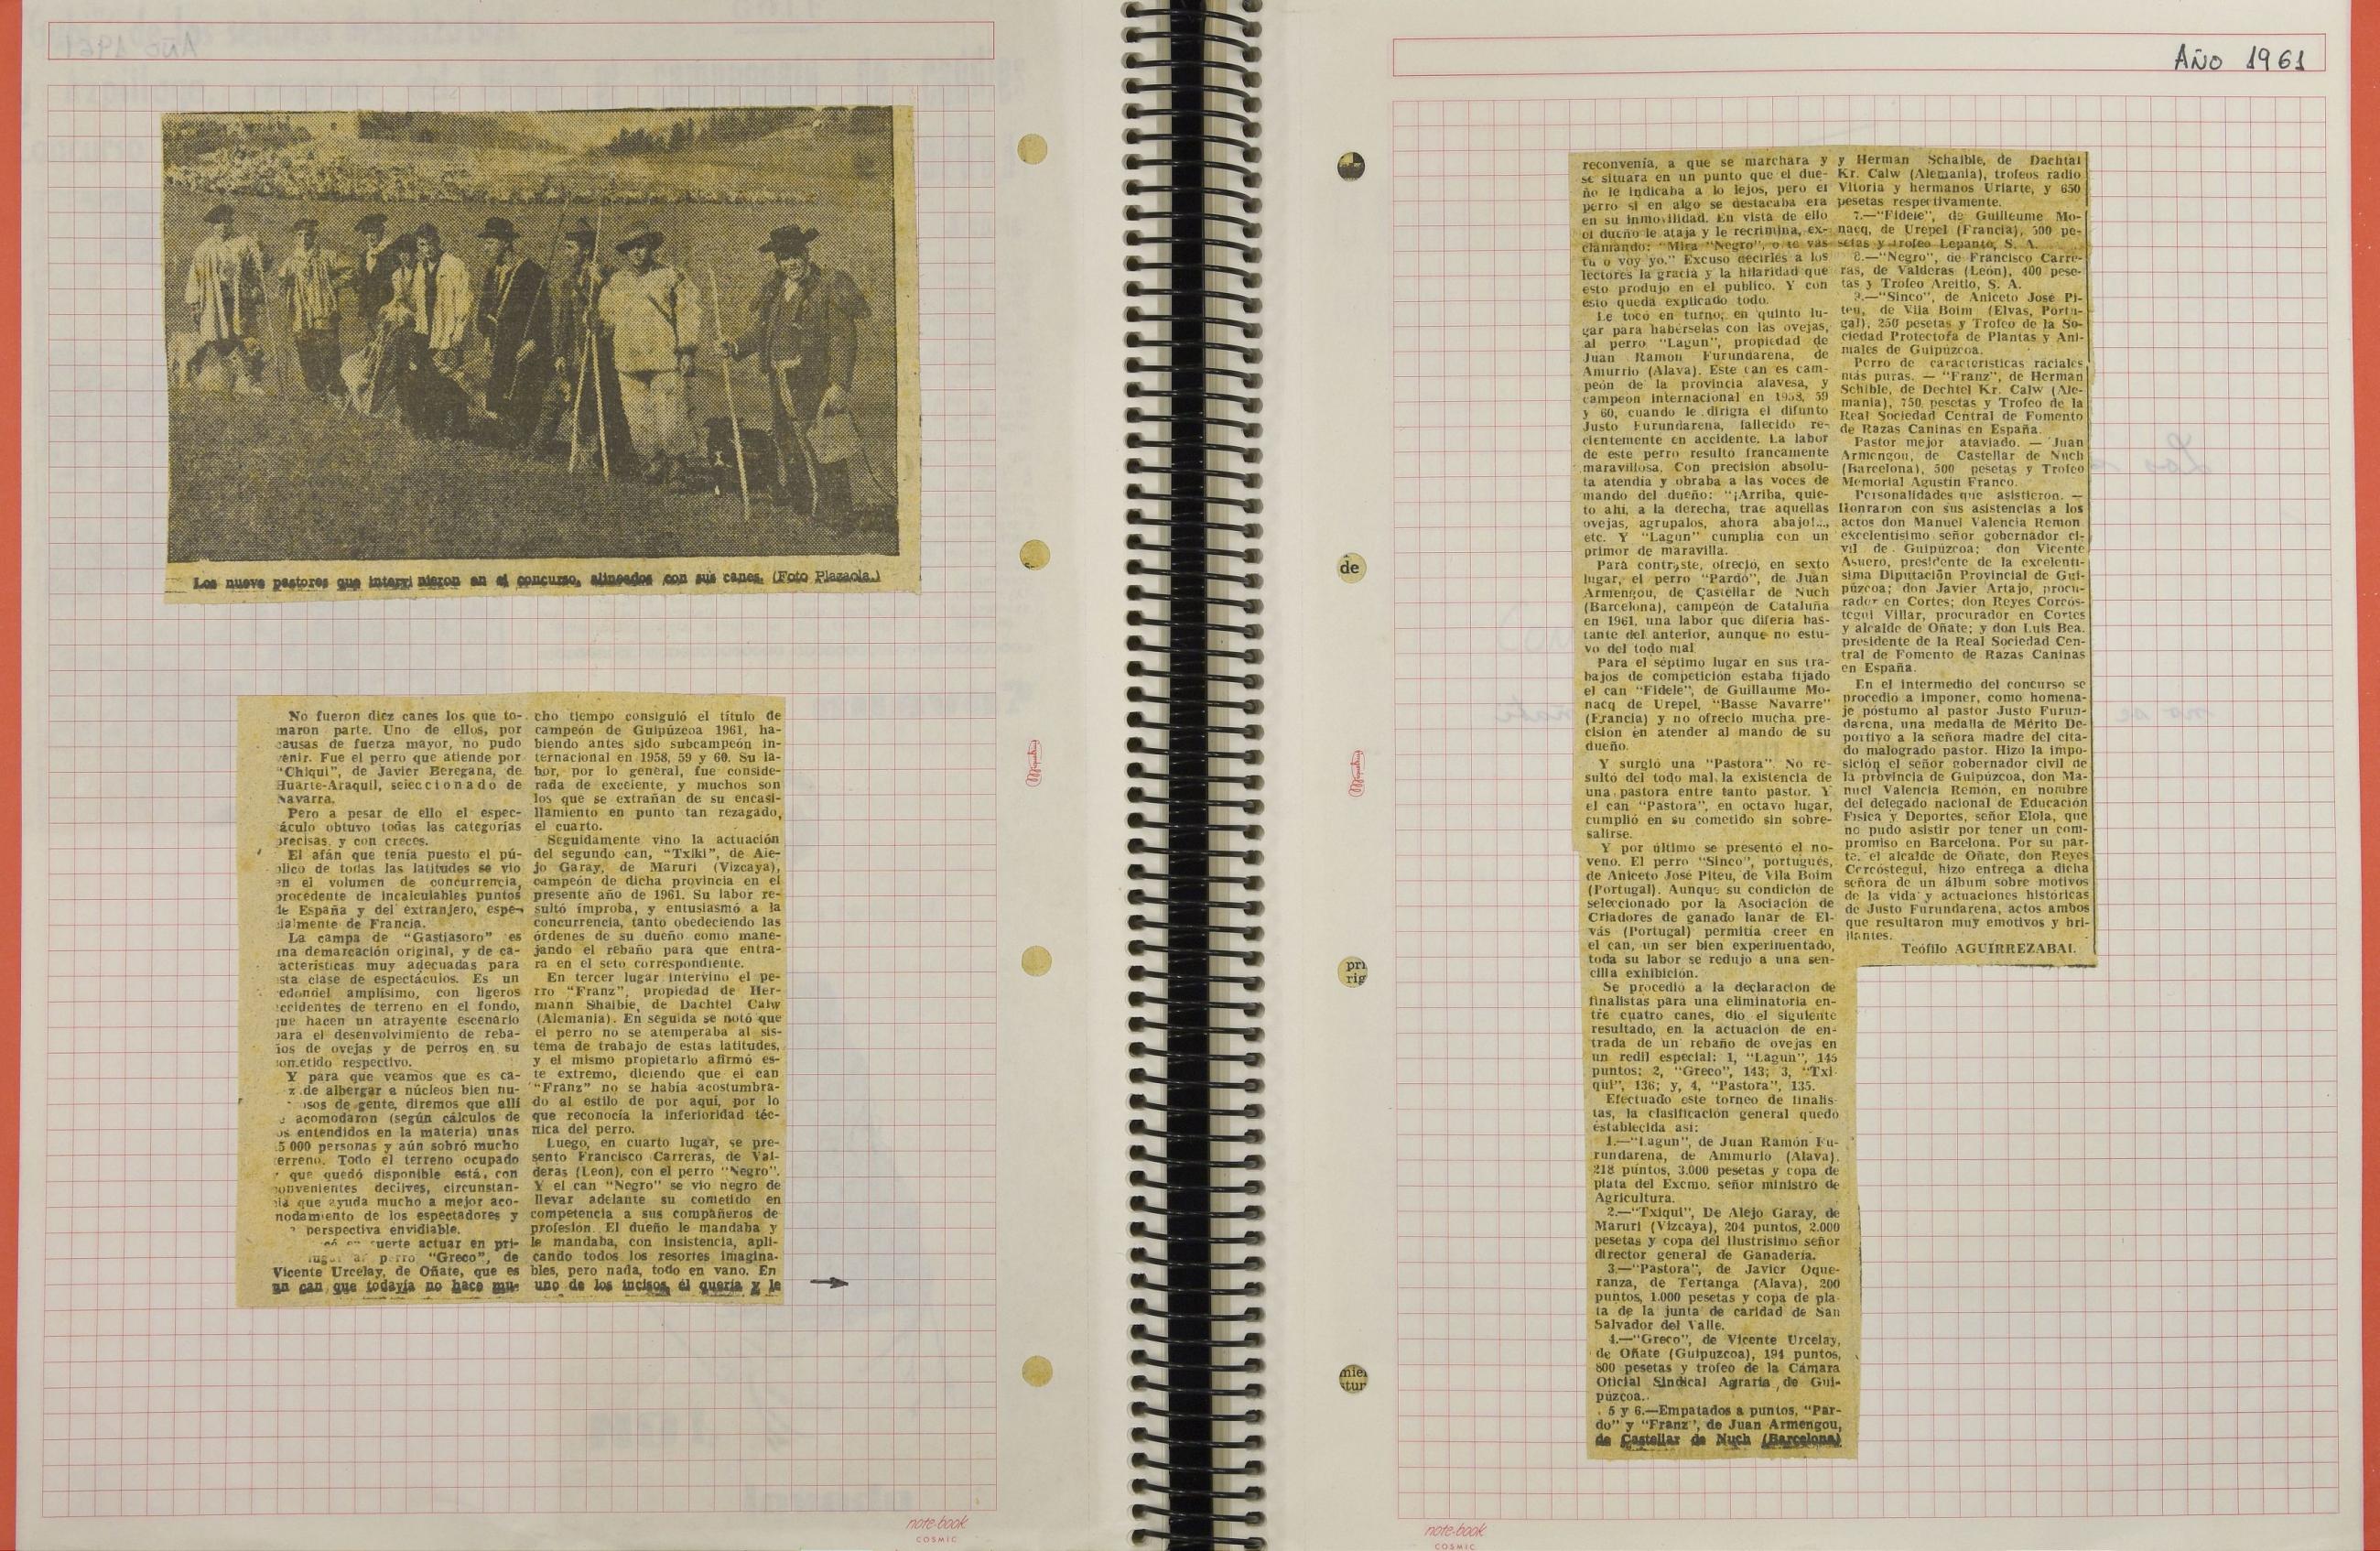 Los nueve pastores que intervinieron en el concurso, alineados con sus canes. (Foto Plazaola.)
No fueron diez canes los que to-
maron parte. Uno de ellos, por
causas de fuerza mayor, no pudo
venir. Fue el perro que atiende por
"Chiqui", de Javier Beregana, de
Huarte-Araquil, seleccionado de
Navarra.
Pero a pesar de ello el espec-
áculo obtuvo todas las categorías
precisas, y con creces.
El afán que tenía puesto el pú-
blico de todas las latitudes se vio
en el volumen de concurrencia,
procedente de incalculables puntos
de España y del extranjero, espe-
cialmente de Francia.
La campa de "Gastiasoro" es
una demarcación original, y de ca-
acterísticas muy adecuadas para
sta clase de espectáculos. Es un
edondel amplísimo, con ligeros
ccidentes de terreno en el fondo,
que hacen un atrayente escenario
para el desenvolvimiento de reba-
ños de ovejas y de perros en su
cometido respectivo.
Y para que veamos que es ca-
z de albergar a núcleos bien nu-
osos de gente, diremos que allí
acomodaron (según cálculos de
os entendidos en la materia) unas
5 000 personas y aún sobró mucho
erreno. Todo el terreno ocupado
que quedó disponible está, con
onvenientes declives, circunstan-
cia que ayuda mucho a mejor aco-
modamiento de los espectadores y
perspectiva envidiable.
uerte actuar en pri-
lugar al perro "Greco", de
Vicente Urcelay, de Oñate, que es
un can que todavía no hace mu-
cho tiempo consiguió el título de
campeón de Guipúzcoa 1961, ha-
biendo antes sido subcampeón in-
ternacional en 1958, 59 y 60. Su la-
bor, por lo general, fue conside-
rada de excelente, y muchos son
los que se extrañan de su encasi-
llamiento en punto tan rezagado,
el cuarto.
Seguidamente vino la actuación
del segundo can, "Txiki", de Ale-
jo Garay, de Maruri (Vizcaya),
campeón de dicha provincia en el
presente año de 1961. Su labor re-
sultó ímproba, y entusiasmó a la
concurrencia, tanto obedeciendo las
órdenes de su dueño como mane-
jando el rebaño para que entra-
ra en el seto correspondiente.
En tercer lugar intervino el pe-
rro "Franz", propiedad de Her-
mann Shaibie, de Dachtel Calw
(Alemania). En seguida se notó que
el perro no se atemperaba al sis-
tema de trabajo de estas latitudes,
y el mismo propietario afirmó es-
te extremo, diciendo que el can
"Franz" no se había acostumbra-
do al estilo de por aquí, por lo
que reconocía la inferioridad téc-
nica del perro.
Luego, en cuarto lugar, se pre-
sento Francisco Carreras, de Val-
deras (Leon), con el perro "Negro".
Y el can "Negro" se vio negro de
llevar adelante su cometido en
competencia a sus compañeros de
profesión. El dueño le mandaba y
le mandaba, con insistencia, apli-
cando todos los resortes imagina-
bles, pero nada, todo en vano. En
uno de los incisos, él quería y le
Año 1961
reconvenía, a que se marchara y
se situara en un punto que el due-
ño le indicaba a lo lejos, pero el
perro si en algo se destacaba era
en su inmovilidad. En vista de ello
el dueño le ataja y le recrimina, ex-
clamando: "Mira "Negro", o te vas
tu o voy yo." Excuso decirles a los
lectores la gracia y la hilaridad que
esto produjo en el público. Y con
esto queda explicado todo.
Le tocó en turno, en quinto lu-
gar para habérselas con las ovejas,
al perro "Lagun", propiedad de
Juan Ramón Furundarena, de
Amurrio (Alava). Este can es cam-
peón de la provincia alavesa, y
campeón internacional en 1958, 59
y 60, cuando le dirigía el difunto
Justo Furundarena, fallecido re-
cientemente en accidente. La labor
de este perro resultó francamente
maravillosa. Con precisión absolu-
ta atendía y obraba a las voces de
mando del dueño: "¡Arriba, quie-
to ahí, a la derecha, trae aquellas
ovejas, agrupalos, ahora abajo!...,
etc. Y "Lagun" cumplía con un
primor de maravilla.
Para contraste, ofreció, en sexto
lugar, el perro "Pardo", de Juan
Armengou, de Castellar de Nuch
(Barcelona), campeón de Cataluña
en 1961, una labor que difería bas-
tante del anterior, aunque no estu-
vo del todo mal
Para el séptimo lugar en sus tra-
bajos de competición estaba fijado
el can "Fidele", de Guillaume Mo-
nacq de Urepel, "Basse Navarre"
(Francia) y no ofreció mucha pre-
cisión en atender al mando de su
dueño.
Y surgió una "Pastora". No re-
sultó del todo mal, la existencia de
una pastora entre tanto pastor. Y
el can "Pastora", en octavo lugar,
cumplió en su cometido sin sobre-
salirse.
Y por último se presentó el no-
veno. El perro "Sinco", portugués,
de Aniceto José Piteu, de Vila Boim
(Portugal). Aunque su condición de
seleccionado por la Asociación de
Criadores de ganado lanar de El-
vás (Portugal) permitía creer en
el can, un ser bien experimentado,
toda su labor se redujo a una sen-
cilla exhibición.
Se procedió a la declaracion de
finalistas para una eliminatoria en-
tre cuatro canes, dio el siguiente
resultado, en la actuación de en-
trada de un rebaño de ovejas en
un redil especial: 1, "Lagun", 145
puntos; 2, "Greco", 143; 3, "Txi-
qui", 136; y, 4, "Pastora", 135.
Efectuado este torneo de finalis-
tas, la clasificación general quedó
establecida así:
1.—"Lagun", de Juan Ramón Fu-
rundarena, de Ammurio (Alava).
218 puntos, 3.000 pesetas y copa de
plata del Excmo. señor ministro de
Agricultura.
2.—"Txiqui", De Alejo Garay, de
Maruri (Vizcaya), 204 puntos, 2.000
pesetas y copa del ilustrísimo señor
director general de Ganadería.
3.—"Pastora", de Javier Oque-
ranza, de Tertanga (Alava), 200
puntos, 1.000 pesetas y copa de pla-
ta de la junta de caridad de San
Salvador del Valle.
4.—"Greco", de Vicente Urcelay,
de Oñate (Guipuzcoa), 194 puntos,
800 pesetas y trofeo de la Cámara
Oficial Sindical Agraria de Gui-
púzcoa.
5 y 6.—Empatados a puntos, "Par-
do" y "Franz", de Juan Armengou,
de Castellar de Nuch (Barcelona)
y Herman Schaible, de Dachtal
Kr. Calw (Alemania), trofeos radio
Vitoria y hermanos Uriarte, y 650
pesetas respectivamente.
7.—"Fidele", de Guilleume Mo-
nacq, de Urepel (Francia), 500 pe-
setas y trofeo Lepanto, S. A.
8.—"Negro", de Francisco Carre-
ras, de Valderas (León), 400 pese-
tas y Trofeo Arcitio, S. A.
9.—"Sinco", de Aniceto José Pi-
teu, de Vila Boim (Elvas, Portu-
gal), 250 pesetas y Trofeo de la So-
ciedad Protectora de Plantas y Ani-
males de Guipúzcoa.
Perro de características raciales
más puras. — "Franz", de Herman
Schible, de Dechtel Kr. Calw (Ale-
mania), 750 pesetas y Trofeo de la
Real Sociedad Central de Fomento
de Razas Caninas en España.
Pastor mejor ataviado. — Juan
Armengou, de Castellar de Nuch
(Barcelona), 500 pesetas y Trofeo
Memorial Agustín Franco.
Personalidades que asistieron. —
Honraron con sus asistencias a los
actos don Manuel Valencia Remon
excelentísimo señor gobernador ci-
vil de Guipúzcoa; don Vicente
Asuero, presidente de la excelentí-
sima Diputación Provincial de Gui-
púzcoa; don Javier Artajo, procu-
rador en Cortes; don Reyes Corcós-
tegui Villar, procurador en Cortes
y alcalde de Oñate; y don Luis Bea.
presidente de la Real Sociedad Cen-
tral de Fomento de Razas Caninas
en España.
En el intermedio del concurso se
procedió a imponer, como homena-
je póstumo al pastor Justo Furun-
darena, una medalla de Mérito De-
portivo a la señora madre del cita-
do malogrado pastor. Hizo la impo-
sición el señor gobernador civil de
la provincia de Guipúzcoa, don Ma-
nuel Valencia Remón, en nombre
del delegado nacional de Educación
Física y Deportes, señor Elola, que
no pudo asistir por tener un com-
promiso en Barcelona. Por su par-
te, el alcalde de Oñate, don Reyes
Cercóstegui, hizo entrega a dicha
señora de un álbum sobre motivos
de la vida y actuaciones históricas
de Justo Furundarena, actos ambos
que resultaron muy emotivos y bri-
llantes.
Teófilo AGUIRREZABAL
de
pri
rig
mie
tur
note-book
COSMIC
note-book
COSMIC